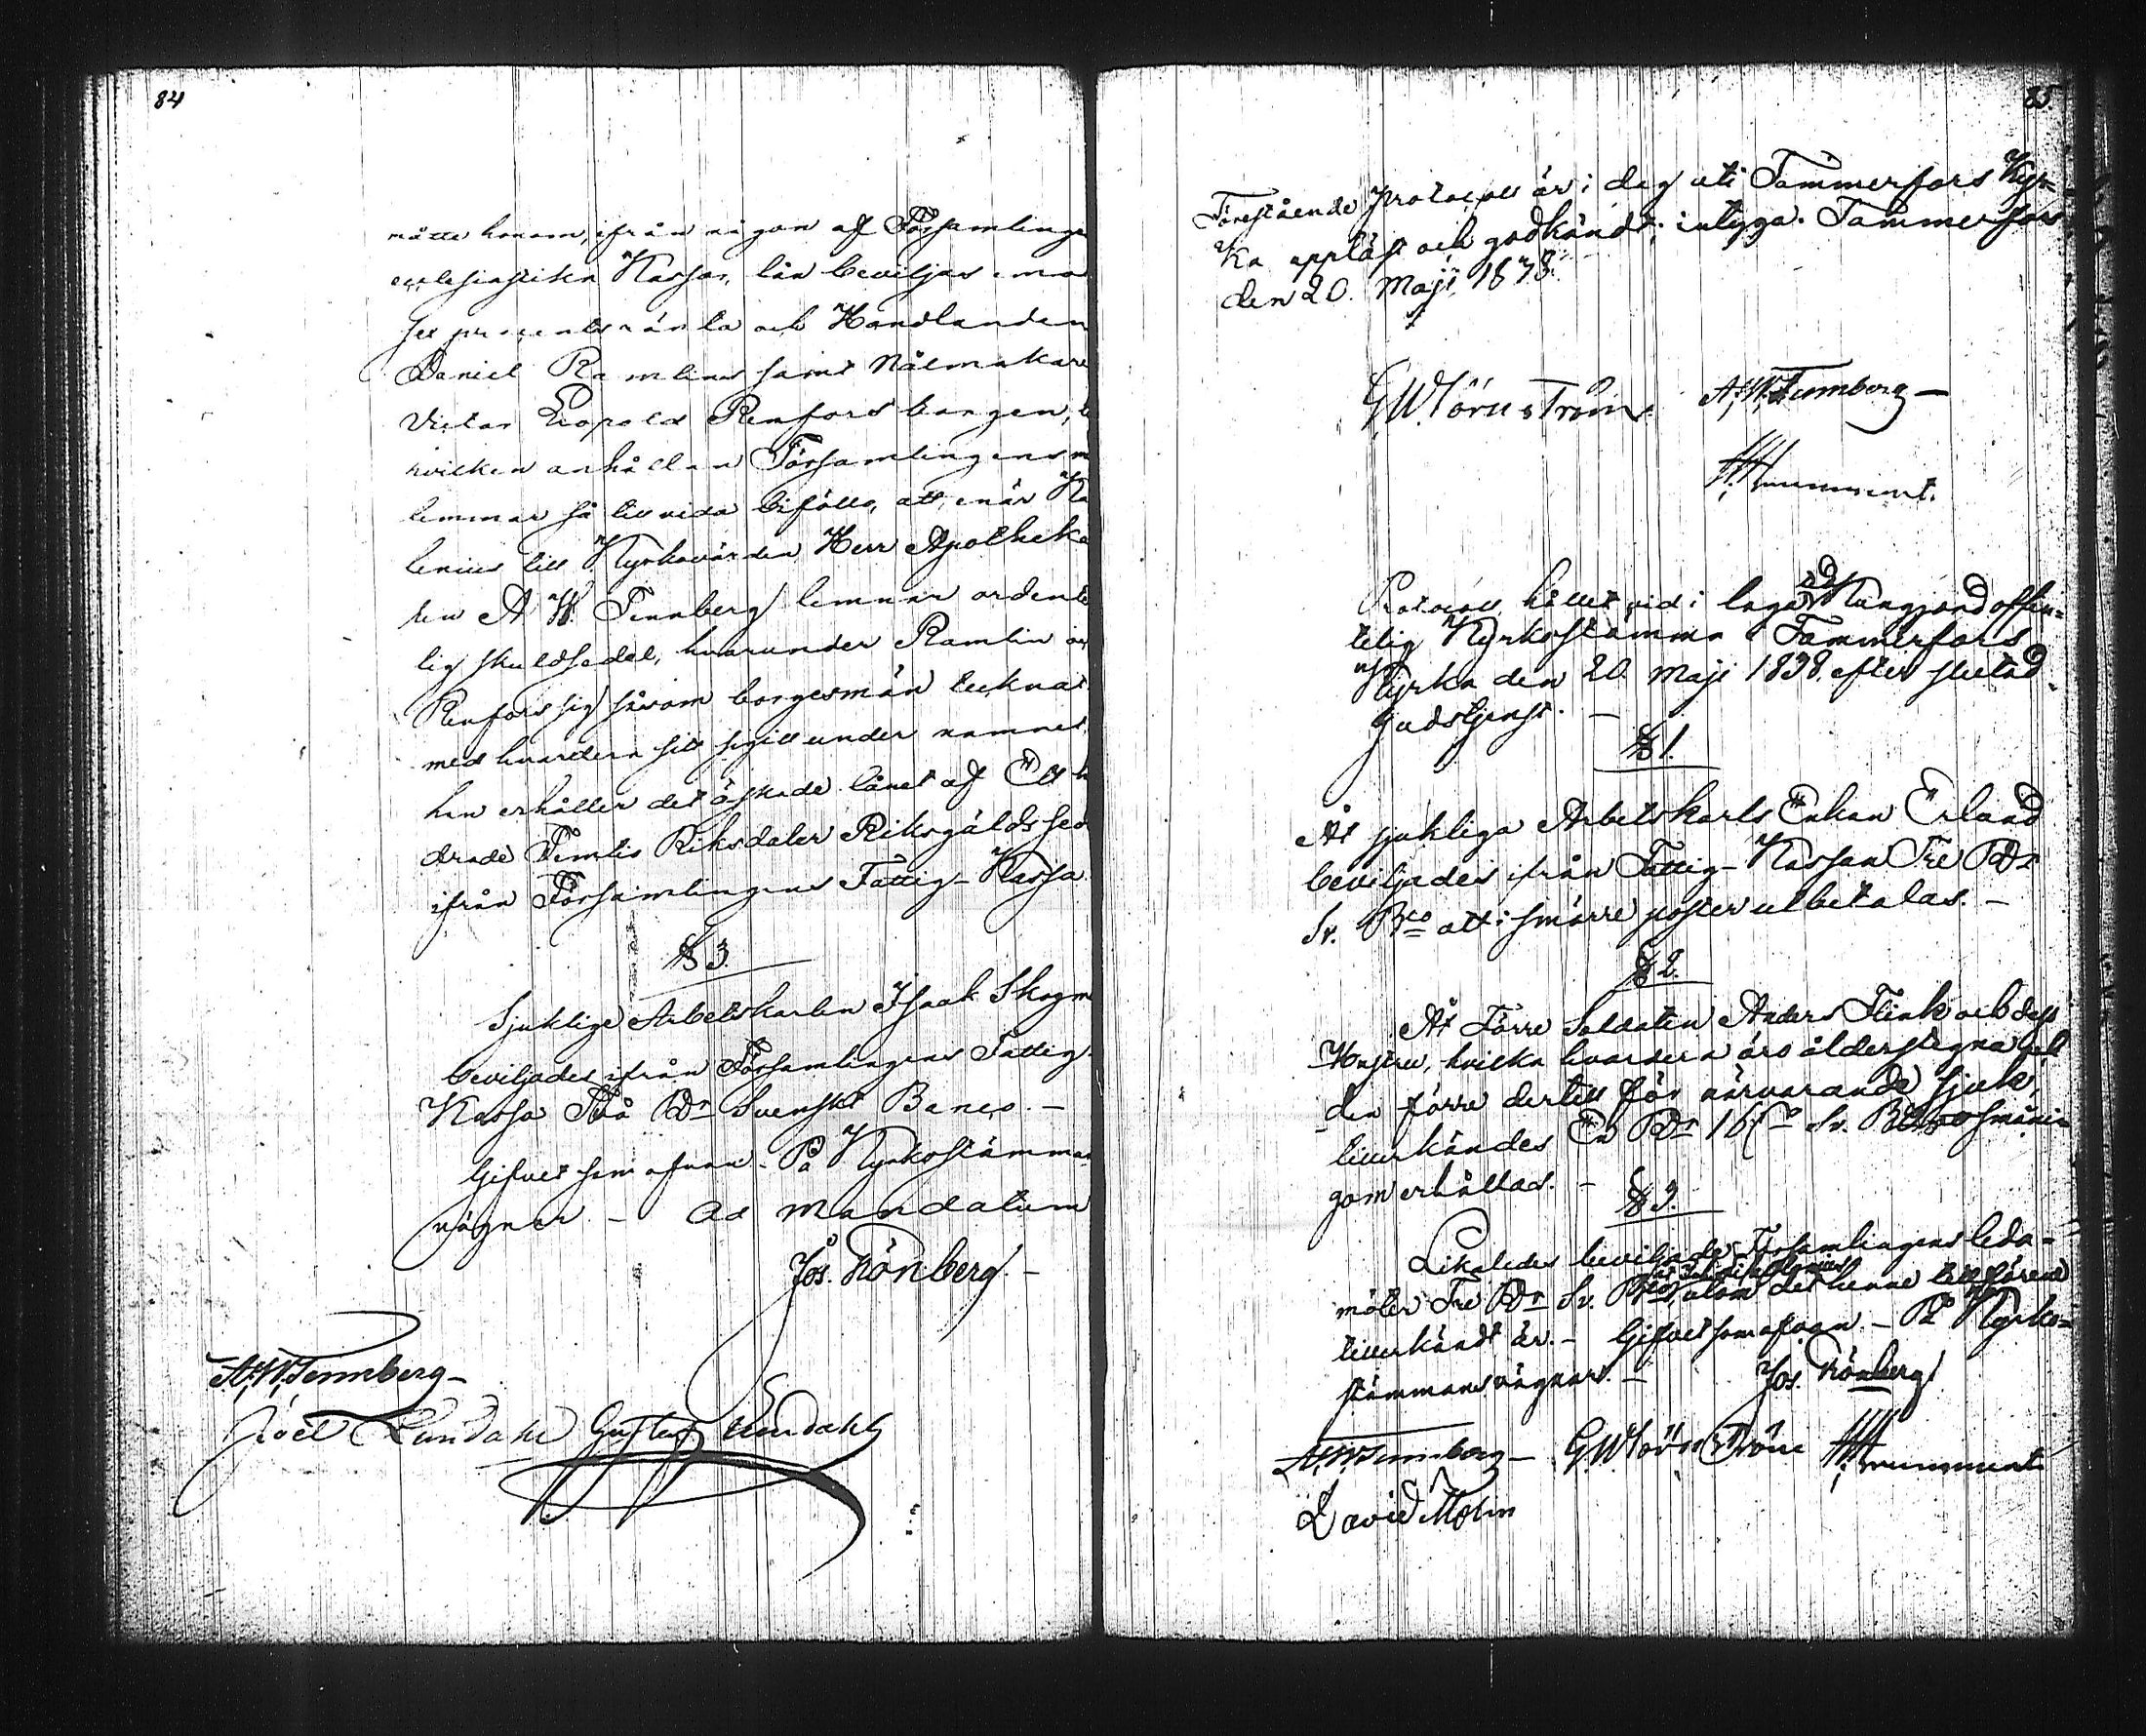 84
måtte honom, ifrån någon af Församlingen
ecclesiastika Kassor, lån beviljas emo
sex procents ränta och Handlanden
Daniel Ramlins samt Nålmakare
Victor Leopold Renfors borgen,
hvilken anhållan Församlingens
lemmar så till vida biföllo, att, enär
lenius till Kyrkovärden Herr Apotheka
ren A W. Tennberg lemnar ordent
lig skuldsedel, hvarunder Ramlin
Renfors sig såsom borgesmän tecknat
med hvardera sitt sigill under namnet,
han erhåller det äskade lånet af Ett
drade Femtio Riksdaler Riksgälds sed
ifrån Församlingens Fattig-Kassa.
§ 3.
Sjuklige Arbetskarlen Isaak Skogm
beviljades ifrån Församlingens Fattig-
Kassa Två Rdr Svenskt Banco. –
Gifvet som ofvan. På Kyrkostämman
vägnar – Ad mandatum
Jos. Rönberg. –
A. W. Tennberg –
Joel Lundahl Gustaf Lundahl
85
Förestående Protocoll är i dag uti Tammerfors Kyr-
ka uppläst och godkändt; intyga. Tammerfors
den 20. Maji 1838.
G. W. Törnström. A. W. Tennberg –
Protocoll, hållet vid i laga tid kungjord offen-
telig Kyrkostämma i Tammerfors
Kyrka den 20. Maji 1838. efter slutad
gudstjenst. –
§ 1.
Åt sjukliga Arbetskarls Enkan Erland
beviljades ifrån Fattig-Kassan Tre Rdr
Sv. Bco att i smärre poster utbetalas. –
§ 2.
Åt Förre Soldaten Anders Flink och dess
Hustru, hvilka hvardera äro ålderstegna och
den förre dertill för närvarande sjuk,
tillerkändes En Rdr 16 Sv. Bco smånin
gom erhållas. –
§ 3.
Likaledes beviljade Församlingens leda-
möter Tre Rdr Sv. Bco utom det henne till förene
tillerkändt är. – Gifvet som ofvan. – På Kyrko-
stämmans vägnar. – Jos. Rönberg
A. W. Tennberg – G. W. Törnström
David Molin